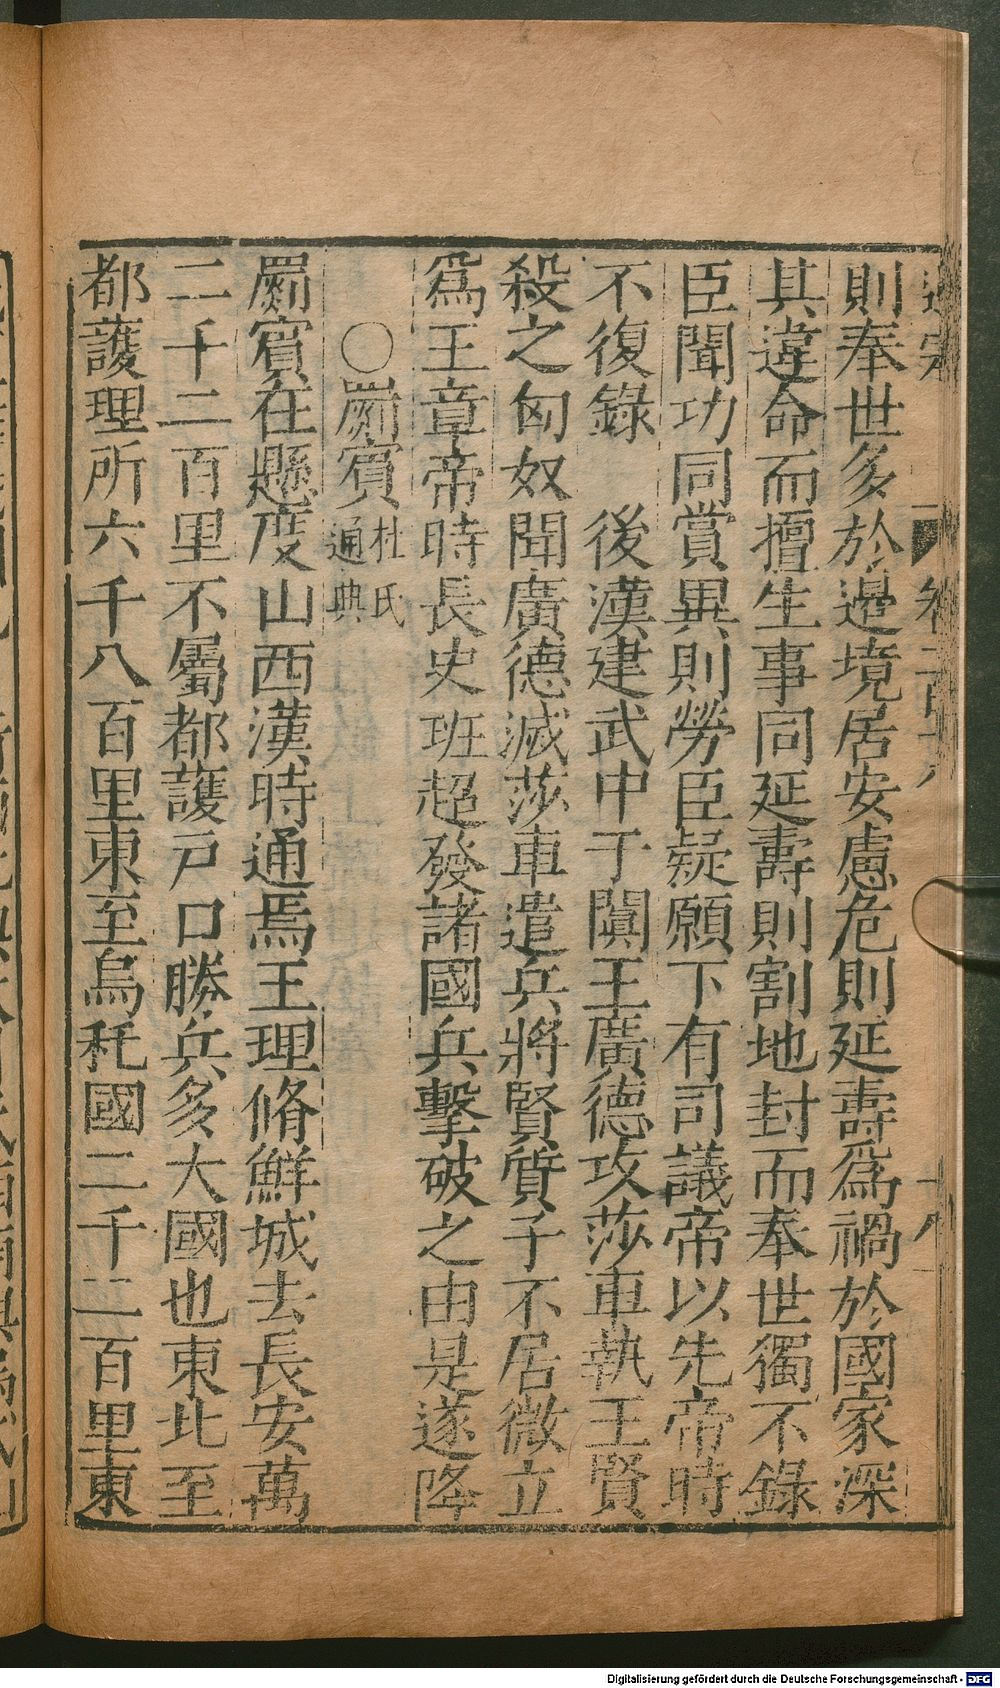 則奉世多於邊境居安慮危則延壽爲禍於國家深
其違命而擅生事同延壽則割地封而奉世獨不錄
臣聞功同賞異則勞臣疑願下有司議帝以先帝時
不復錄　後漢建武中于闐王廣德攻莎車執王賢
殺之匈奴聞廣德滅莎車遣兵將賢質子不居微立
爲王章帝時長史班超發諸國兵擊破之由是遂降
○罽賓杜氏通典
罽賓在懸度山西漢時通焉王理脩鮮城去長安萬
二千二百里不屬都護戸口勝兵多大國也東北至
都護理所六千八百里東至烏秅國二千二百里東
Digitalisierung gefördert durch die Deutsche Forschungsgemeinschaft - DFG